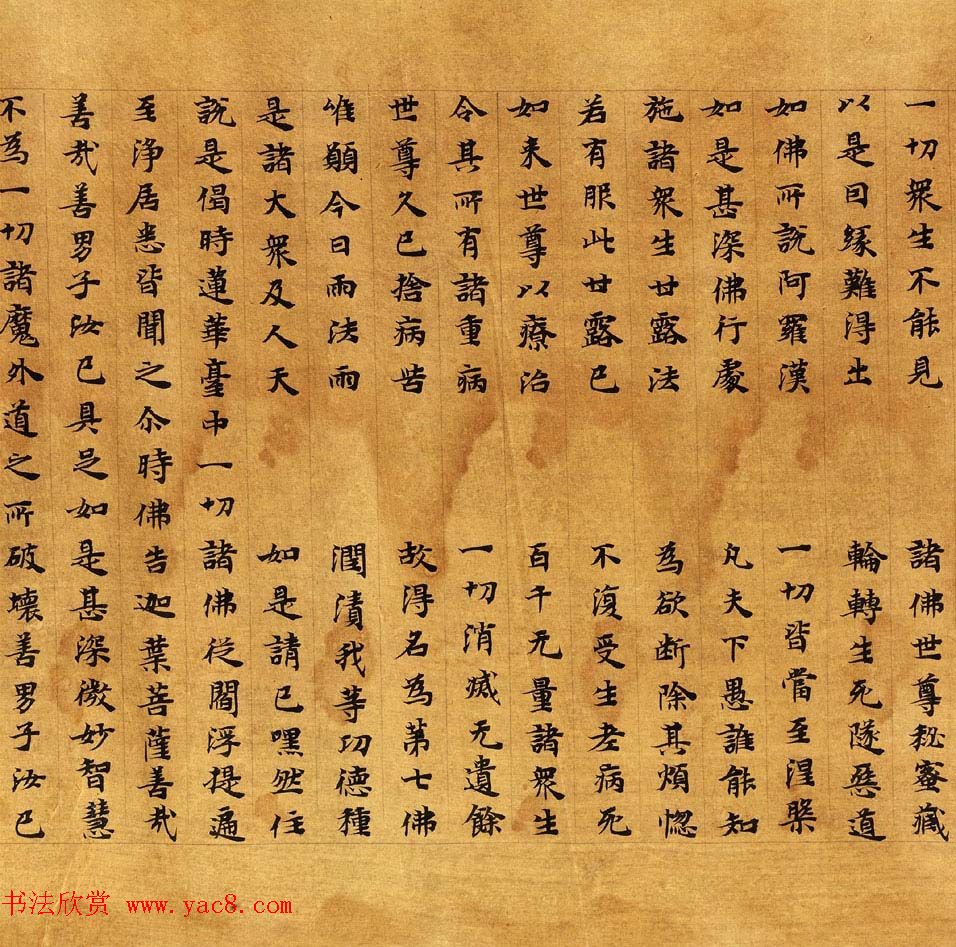 一切衆生不能見　諸佛世尊秘蜜藏
以是因緣難得出　輪轉生死墜惡道
如佛所說阿羅漢　一切皆當至涅槃
如是甚深佛行處　凡夫下愚誰能知
施諸衆生甘露法　為欲断除其煩惚
若有服此甘露已　不復受生老病死
如来世尊以療治　百千无量諸衆生
令其所有諸重病　一切消滅无遺餘
世尊久已捨病苦　故得名為苐七佛
唯願今日雨法雨　潤漬我等功德種
是諸大衆及人天　如是請已嘿然住
說是偈時蓮華臺中一切諸佛從閻浮提遍
至浄居悉皆聞之尒時佛告迦葉菩薩善哉
善哉善男子汝已具足如是甚深微妙智慧
不為一切諸魔外道之所破壞善男子汝已
书法欣赏 www.yac8.com